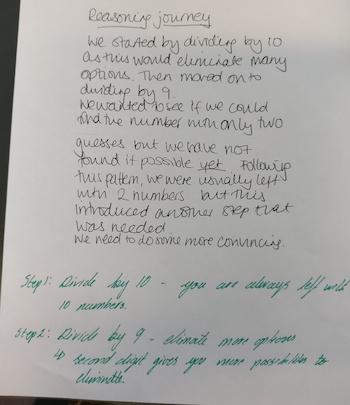 Reasoning journey
We started by dividing by 10
as this would eliminate many
options. Then moved on to
dividing by 9.
We wanted to see if we could
find the number with only two
guesses but we have not
found it possible yet. Following
this pattern, we were usually left
with 2 numbers but this
introduced another step that
was needed.
We need to do some more convincing.
Step 1: Divide by 10 - you are always left with
10 numbers.
Step 2: Divide by 9 - elimate more options
↳ second digit gives you more possibilities to
eliminate.